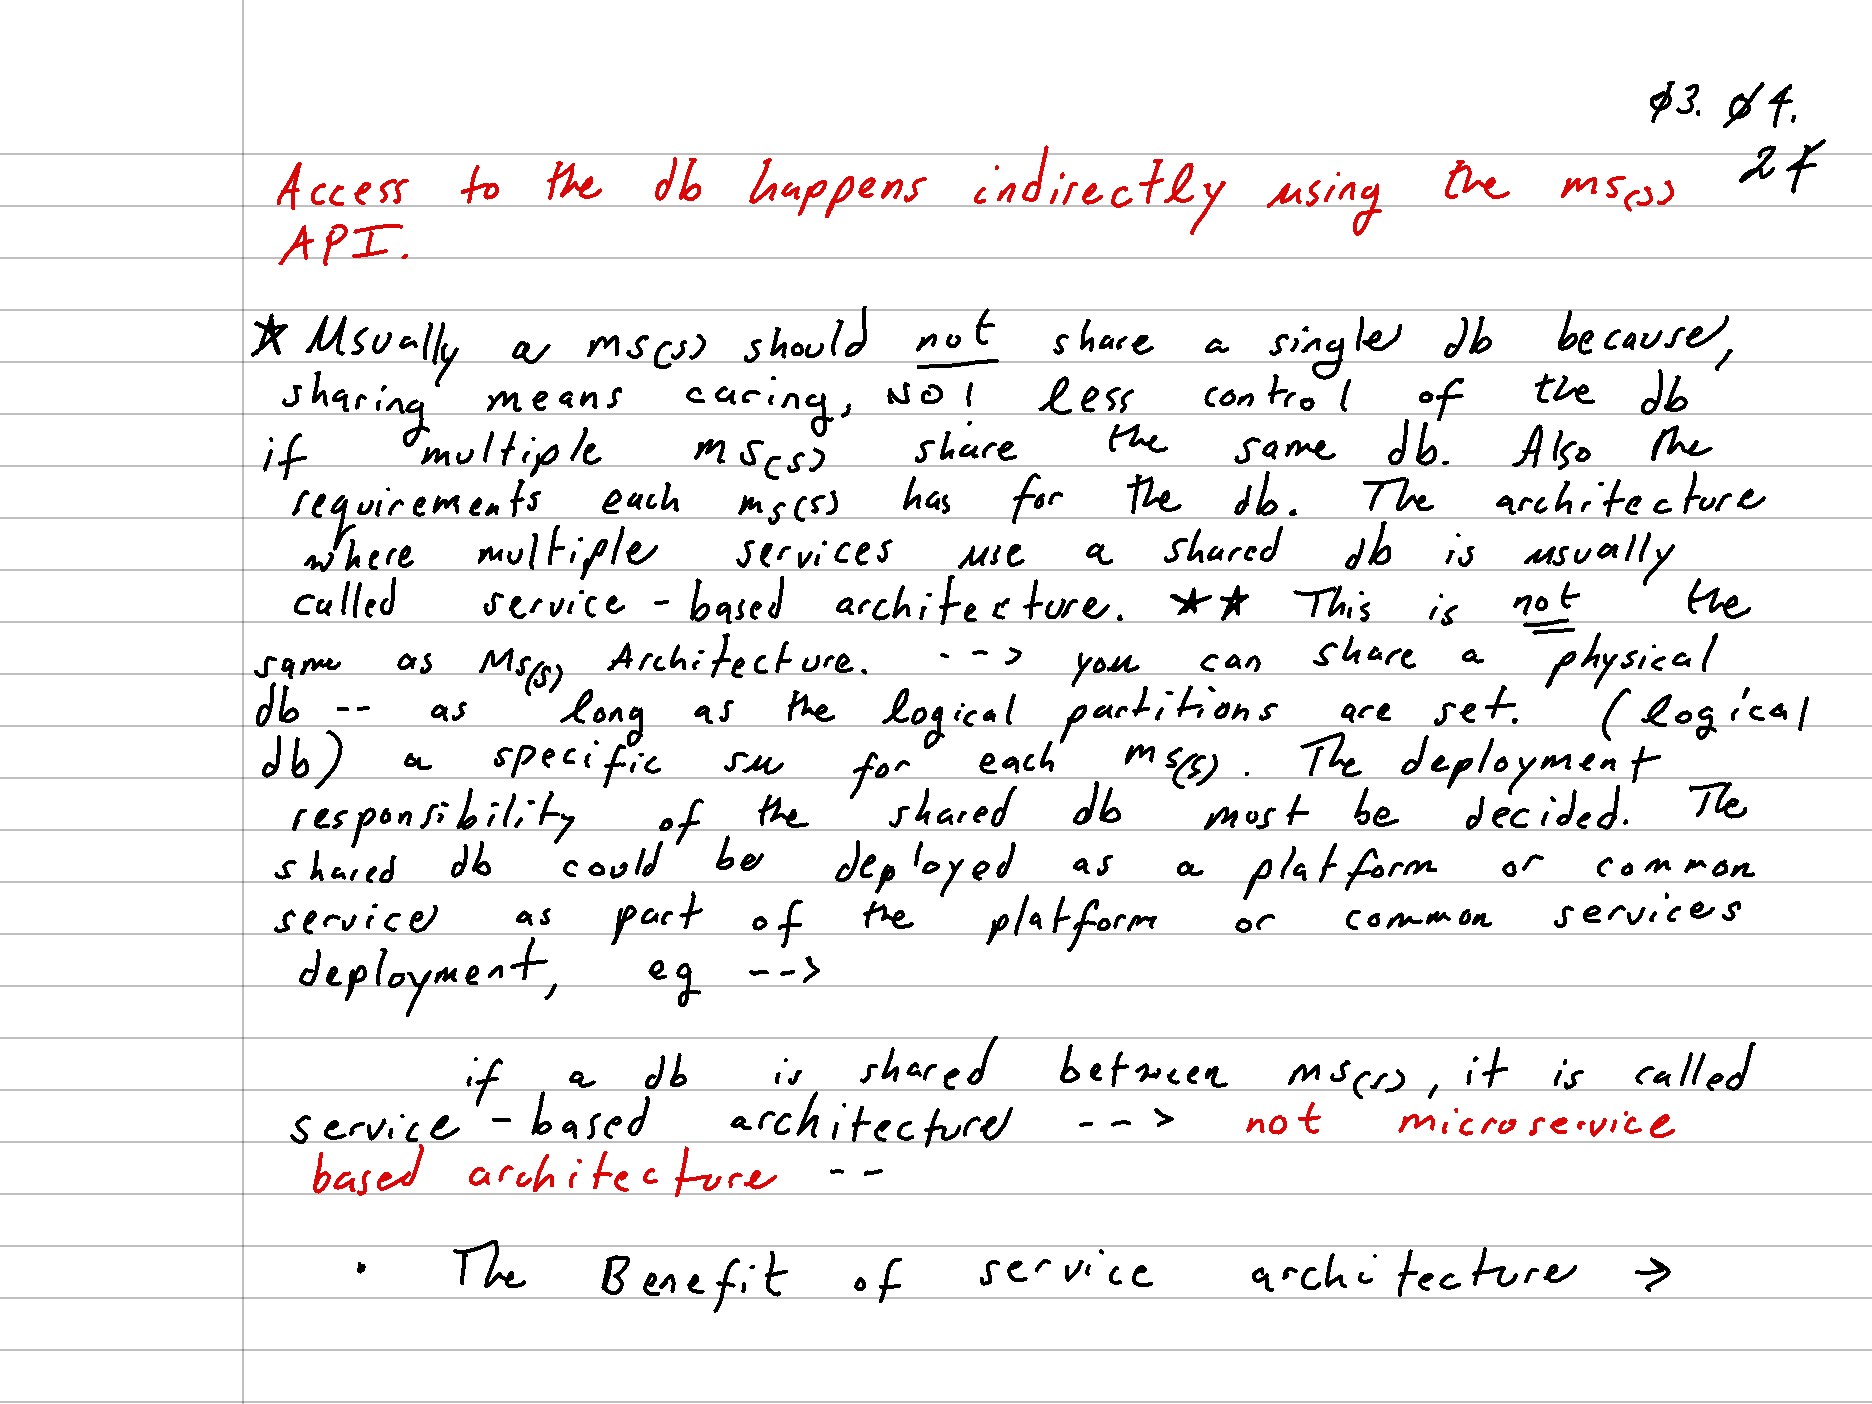 03. 04.
24
Access to the db happens indirectly using the ms(s)
API.
★ Usually a ms(s) should not share a single db because,
sharing means caring, NO! less control of the db
if multiple ms(s) share the same db. Also the
requirements each ms(s) has for the db. The architecture
where multiple services use a shared db is usually
called service-based architecture. ★★ This is not the
same as Ms(s) Architecture. --> you can share a physical
db -- as long as the logical partitions are set. (logical
db) a specific su for each ms(s). The deployment
responsibility of the shared db must be decided. The
shared db could be deployed as a platform or common
service as part of the platform or common services
deployment, eg -->
if a db is shared between ms(s), it is called
service-based architecture --> not microservice
based architecture --
• The Benefit of service architecture →